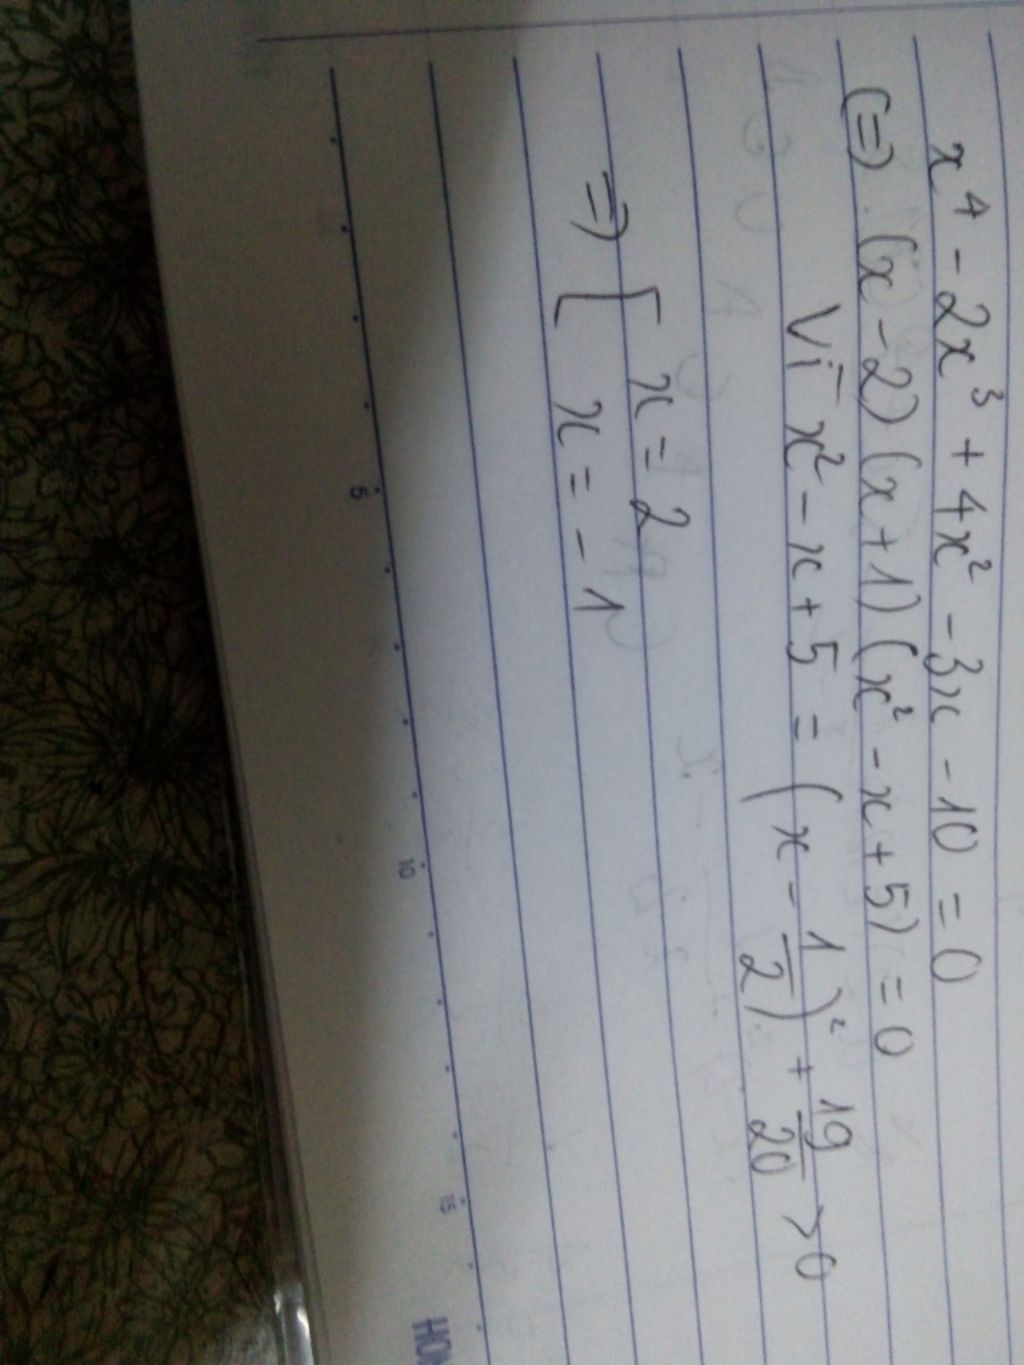 x⁴ - 2x³ + 4x² - 3x - 10 = 0
(=) (x - 2) (x + 1) (x² - x + 5) = 0
Vì x² - x + 5 = (x - 1/2)² + 19/20 > 0
=> [ x = 2
x = -1
5
10
15